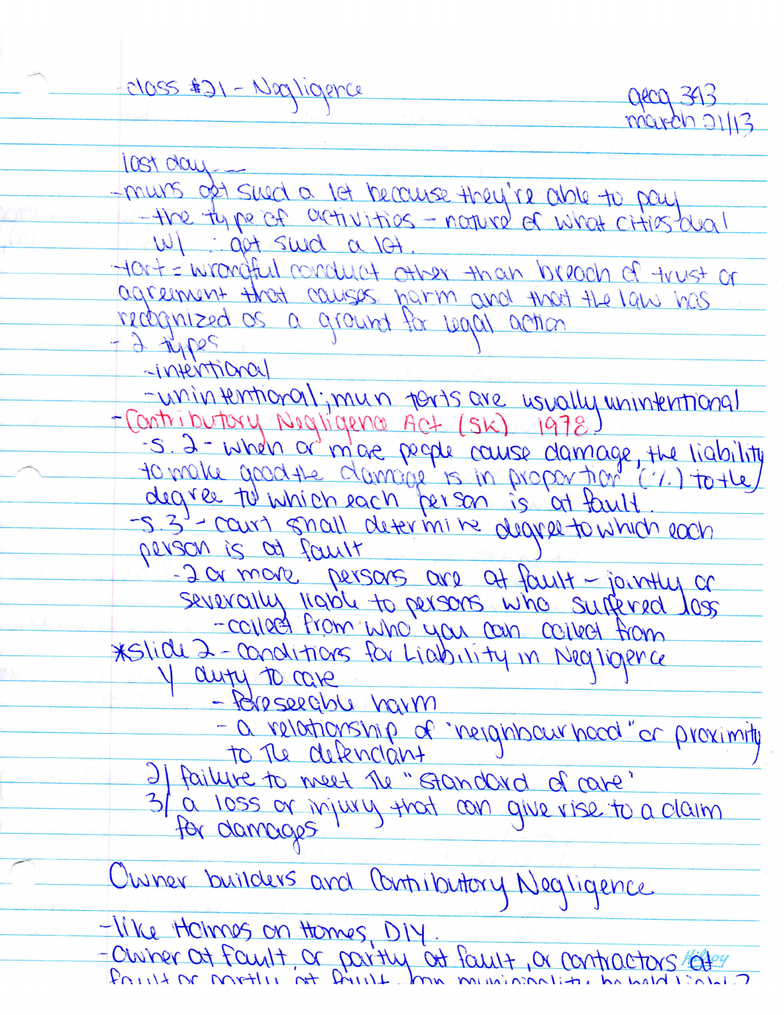 class #21 - Negligence
geog 343
march 21/13
last day...
- muns get sued a lot because they're able to pay
- the type of activities - nature of what cities deal
w/ ∴ get sued a lot.
- tort = wrongful conduct other than breach of trust or
agreement that causes harm and that the law has
recognized as a ground for legal action
- 2 types
- intentional
- unintentional; mun torts are usually unintentional
- Contributory Negligence Act (SK) 1978
- s. 2 - when or more people cause damage, the liability
to make good the damage is in proportion (%) to the
degree to which each person is at fault.
- s. 3 - court shall determine degree to which each
person is at fault
- 2 or more persons are at fault - jointly or
severally liable to persons who suffered loss
- collect from who you can collect from
*slide 2 - conditions for Liability in Negligence
1/ duty to care
- foreseeable harm
- a relationship of "neighbourhood" or proximity
to the defendant
2/ failure to meet the "standard of care"
3/ a loss or injury that can give rise to a claim
for damages
Owner builders and Contributory Negligence
- like Holmes on Homes, DIY.
- Owner at fault, or partly at fault, or contractors at
fault or partly at fault, can municipality be held liable?
Hilroy